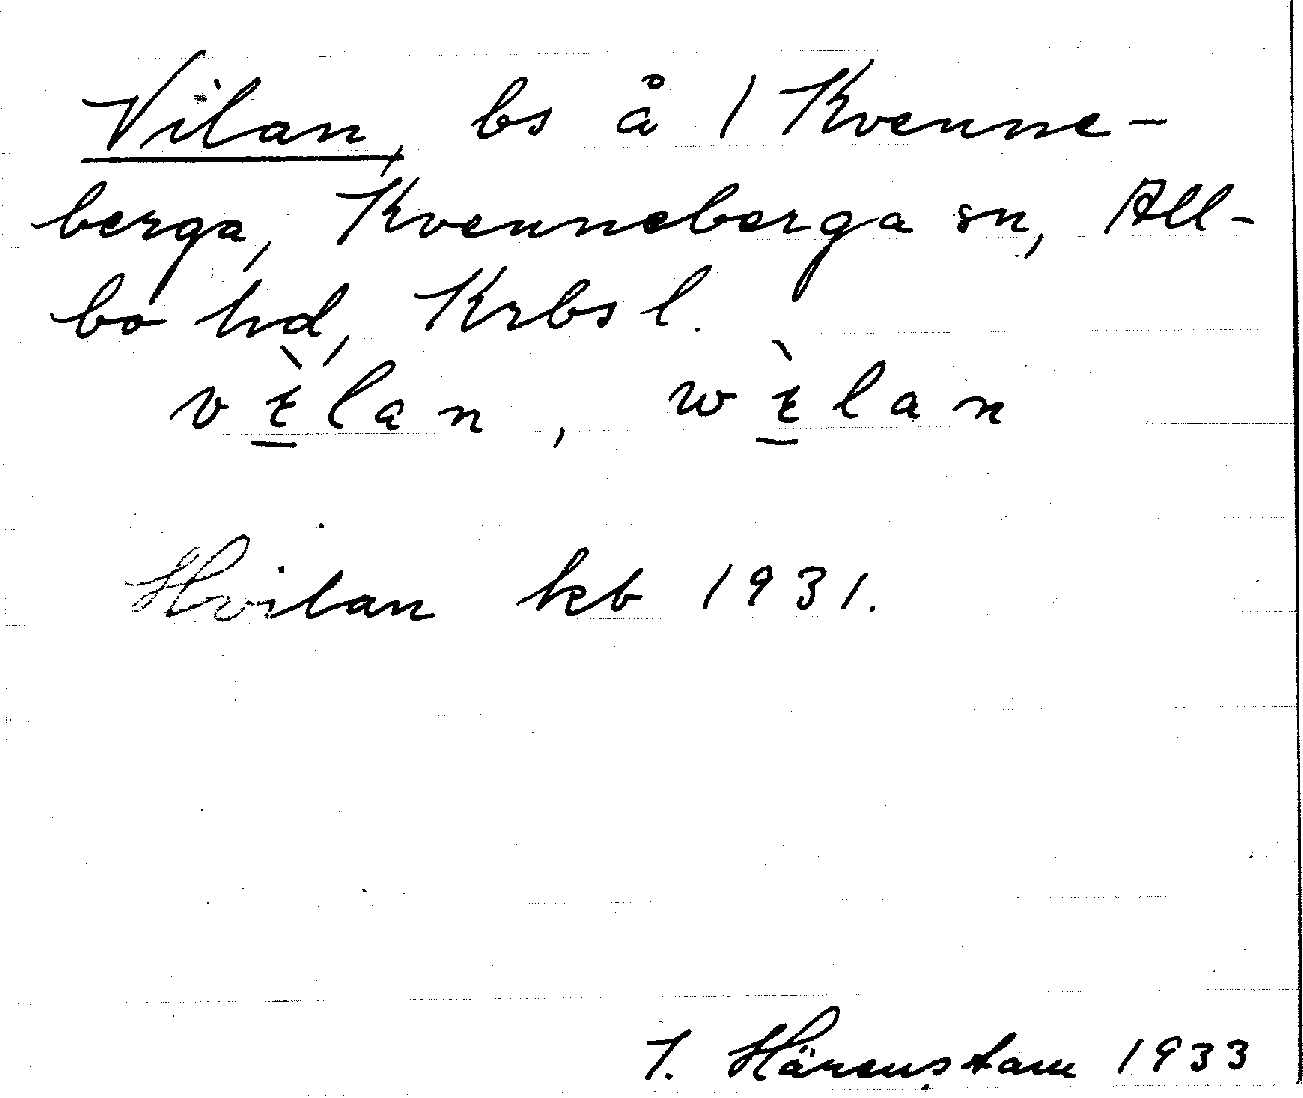 Vilan, bs å 1 Kvenne-
berga, Kvenneberga sn, All-
bo hd, Krbs l.
vɛ̀lan, wɛ̀lan
Hvilan kb 1931.
I. Härenstam 1933